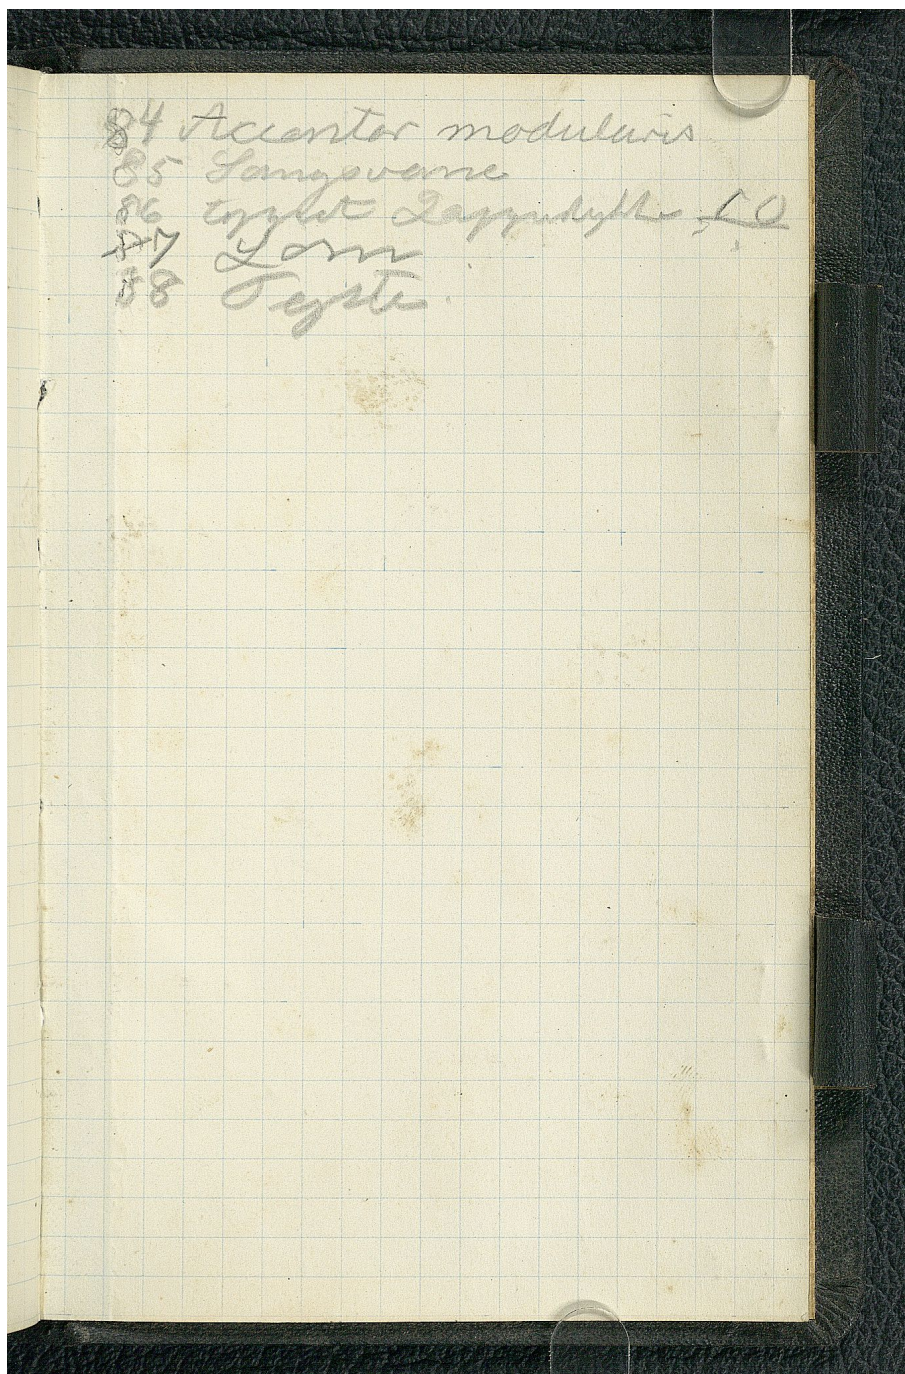 84 Accentor modularis
85 Sangsvane
86 toppet Lappedykker
87 Lom
88 Tejste